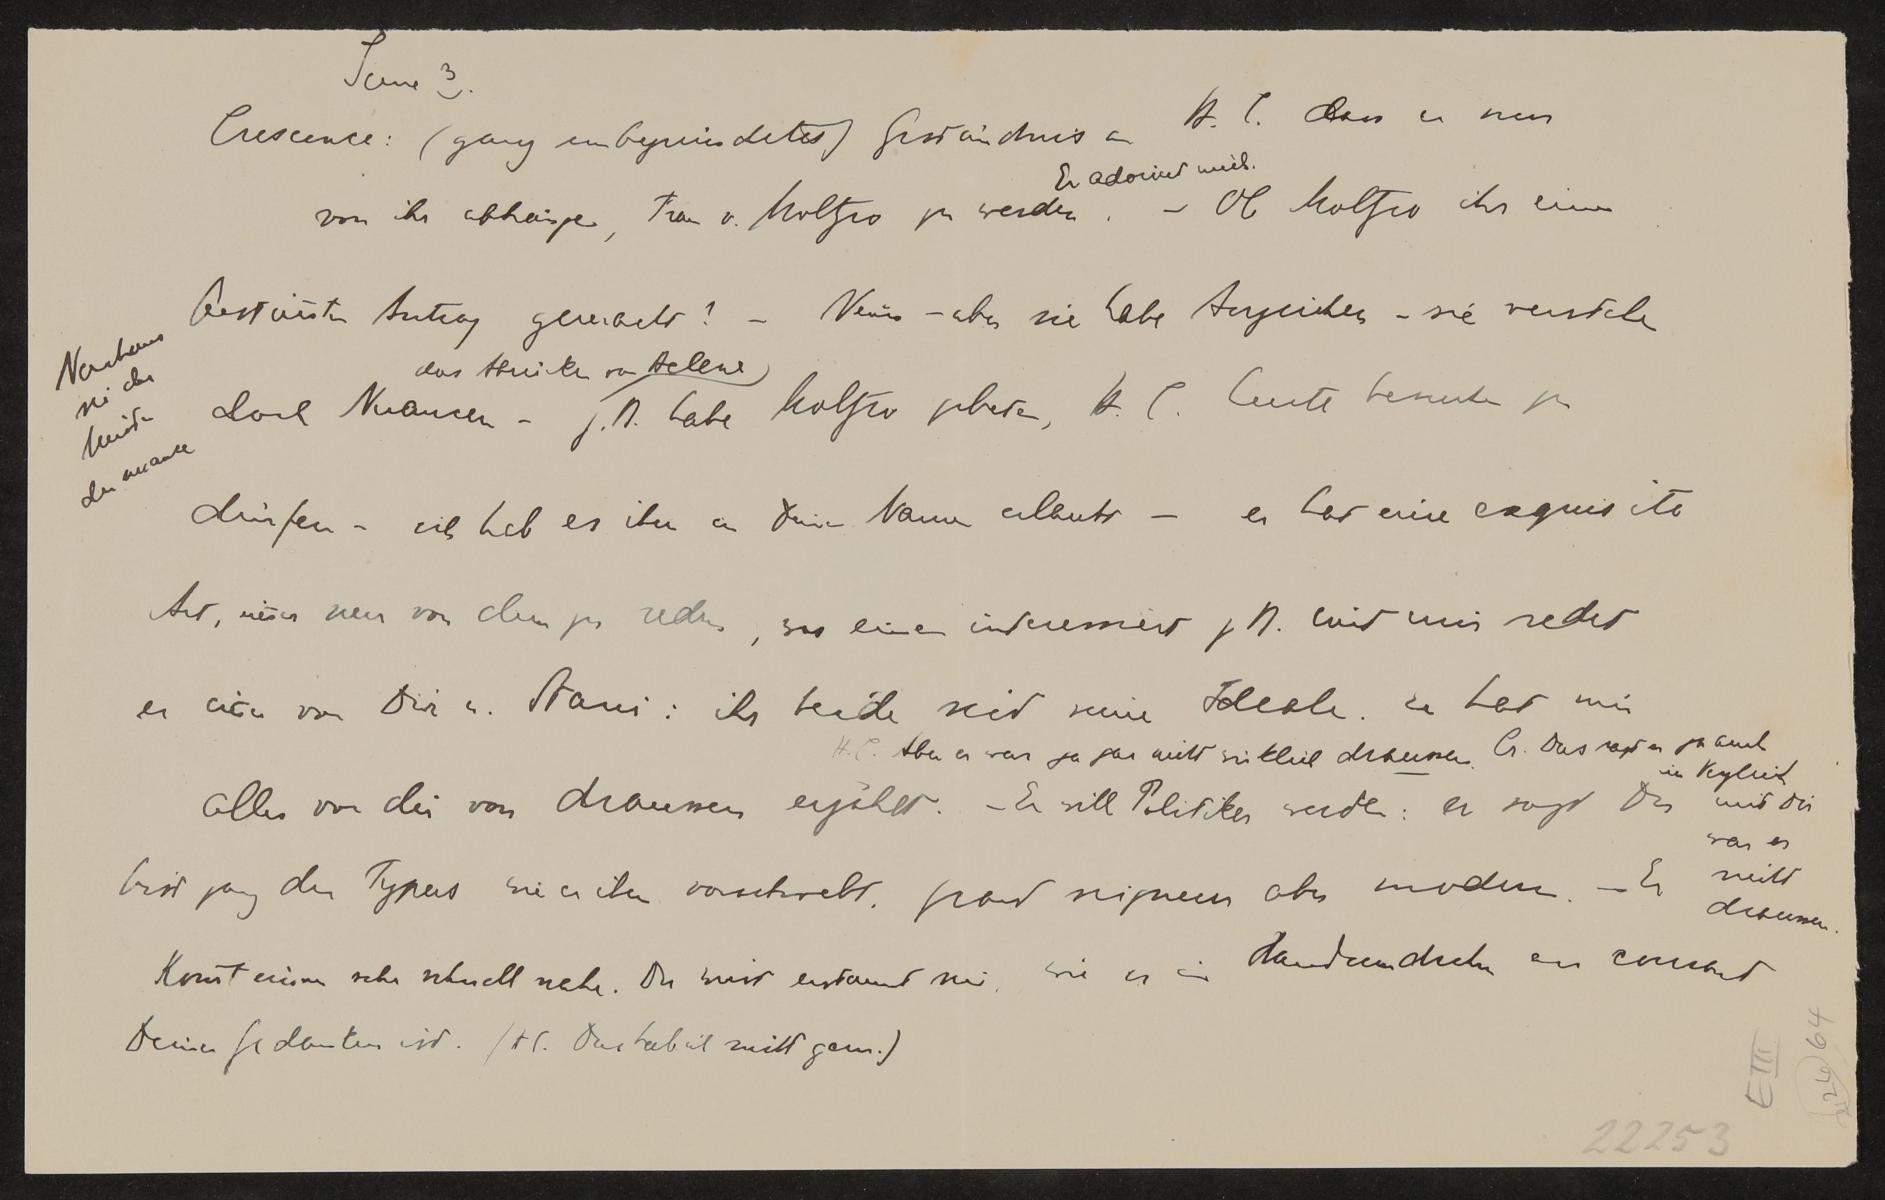 Scene 3.
Crescence: (ganz unbegründetes) Geständnis an H. C. dass es nur
Er adoriert mich.
von ihr abhänge, Frau v. Moltzo zu werden. – Ob Moltzo ihr einen
bestimmten Antrag gemacht? – Nein – aber sie habe Anzeichen – sie verstehe
das Stricken von Helene
Neuhoff
sei der
Meister
der nuance
doch Nuancen – z. B. habe Moltzo gebeten, H. C. heute besuchen zu
dürfen – ich hab es ihm in Deinem Namen erlaubt – er hat eine exquisite
Art, immer nur von dem zu reden, was einen interessiert z B. mit mir redet
er immer von Dir u. Stani: ihr beide seid seine Ideale. er hat mir
H. C. Aber er war ja gar nicht wirklich draussen. Cr. Das sagt er ja auch
im Vergleich
mit Dir
war er
nicht
draussen.
alles von dir von draussen erzählt. – Er will Politiker werden: er sagt Du
bist ganz der Typus wie er ihm vorschwebt. grand seigneur aber modern. – Er
Kommt einem sehr schnell nahe. Du wirst erstaunt sein, wie er im Handumdrehn au courant
Deiner Gedanken ist. (H C. Das hab ich nicht gern.)
E III
22253